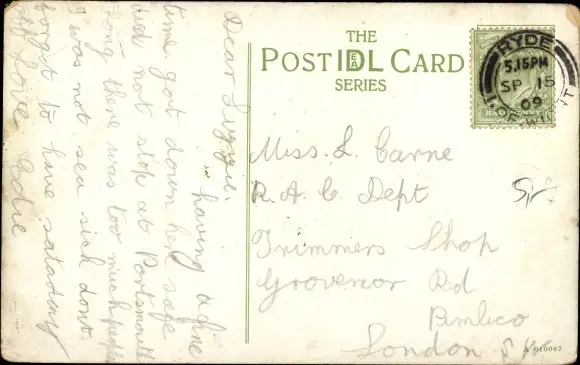 Dear Lizzie.
having a fine
time got down here safe
did not stop at Portsmouth
long there was too much people
I was not sea sick dont
forget to have satarday
off Love Edie
THE
POST IDEAL CARD
SERIES
RYDE
5.15PM
SP 15
09
I. OF WIGHT
HALFPENNY
Miss. L. Carne
R. A. C. Dept
Trimmers Shop
Grovenor Rd
Pimlico
London S.W.
A 010067